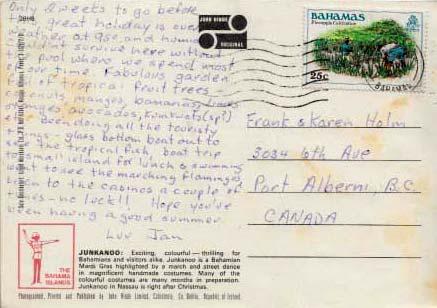 Only 2 weeks to go before
this great holiday is over.
Weather at 95e, and humid
Couldn't survive here without
the pool where we spend most
of our time. Fabulous garden
full of tropical fruit trees
coconut, mangos, bananas, limes
oranges avocados, Kumkwats(sp?)
etc. Been doing all the touristy
things - glass bottom boat out to
see the tropical fish, boat trip
to small island for lunch & swimming
went to see the marching flamingos
been to the casinos a couple of
times - no luck!! Hope you've
been having a good summer.
Luv Jan
JOHN HINDE
ORIGINAL
BAHAMAS
Pineapple Cultivation
25c
BAHAMAS
Frank & Karen Holm
3034 6th Ave
Port Alberni, B.C.
CANADA
THE
BAHAMA
ISLANDS
JUNKANOO: Exciting, colourful — thrilling for
Bahamians and visitors alike. Junkanoo is a Bahamian
Mardi Gras highlighted by a march and street dance
in magnificent handmade costumes. Many of the
colourful costumes are many months in preparation.
Junkanoo in Nassau is right after Christmas.
Photographed, Printed and Published by John Hinde Limited, Cabinteely, Co. Dublin, Republic of Ireland.